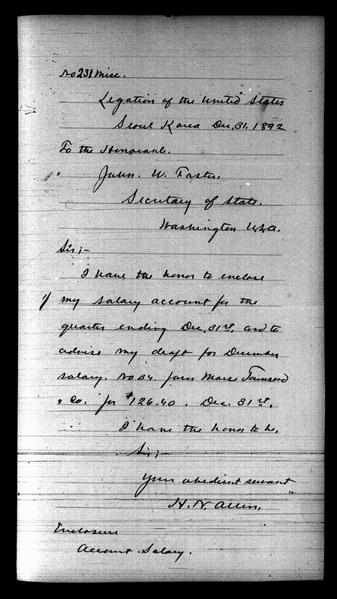 No 231 Misc.
Legation of the United States
Seoul Korea Dec. 31. 1892
To the Honorable.
John. W. Foster.
Secretary of State.
Washington U.S.A.
Sir;-
I have the honor to enclose
my salary account for the
quarter ending Dec, 31st, and to
advise my draft for December
salary. No 34. favor Morse Townsend
& Co. for $126.40. Dec. 31st.
I have the honor to be.
Sir;-
Your obedient servant
H. N. Allen.
Enclosure
Account Salary.